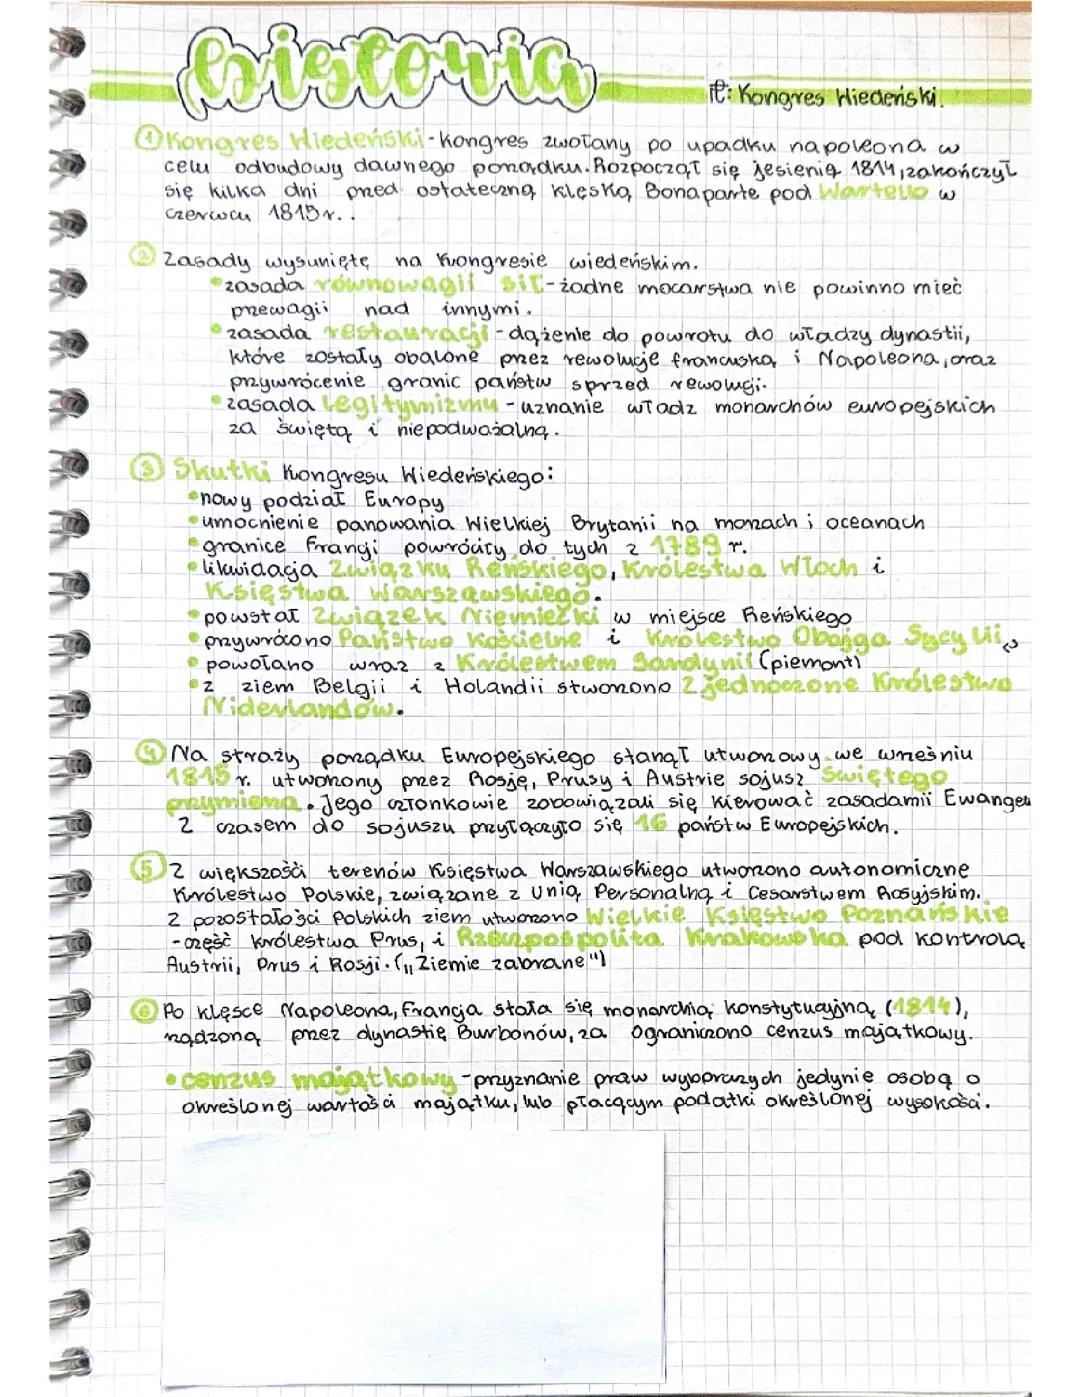 historia
t: Kongres Wiedeński.
① Kongres Wiedeński - kongres zwołany po upadku napoleona w
celu odbudowy dawnego porządku. Rozpoczął się jesienią 1814, zakończył
się kilka dni przed ostateczną klęską Bonaparte pod Wartello w
czerwcu 1815r..
② Zasady wysuniętę na kongresie wiedeńskim.
• zasada równowagii sił - żadne mocarstwa nie powinno mieć
przewagii nad innymi.
• zasada restauracji - dążenie do powrotu do władzy dynastii,
które zostały obalone przez rewolucje francuską i Napoleona, oraz
przywrócenie granic państw sprzed rewolucji.
• zasada Legitymizmu - uznanie władz monarchów europejskich
za świętą i niepodważalną.
③ Skutki Kongresu Wiedeńskiego:
• nowy podział Europy
• umocnienie panowania Wielkiej Brytanii na morzach i oceanach
• granice Francji powróciły do tych z 1789 r.
• likwidacja Związku Reńskiego, Królestwa Włoch i
Księstwa Warszawskiego.
• powstał Związek Niemiecki w miejsce Reńskiego
• przywrócono Państwo Kościelne i Królestwo Obojga Sycylii,
• powołano wraz z Królestwem Sardynii (piemont)
• z ziem Belgii i Holandii stworzono Zjednoczone Królestwo
Niderlandów.
④ Na straży porządku Europejskiego stanął utworzowy we wrześniu
1815 r. utworzony przez Rosję, Prusy i Austrie sojusz Świętego
przymierza. Jego członkowie zobowiązali się kierować zasadamii Ewangeli
Z czasem do sojuszu przyłączyło się 16 państw Europejskich.
⑤ Z większości terenów Księstwa Warszawskiego utworzono autonomiczne
Królestwo Polskie, związane z Unią Personalną i Cesarstwem Rosyjskim.
Z pozostałości Polskich ziem utworzono Wielkie Księstwo Poznańskie
- część królestwa Prus, i Rzeczpospolita Krakowska pod kontrolą
Austrii, Prus i Rosji. („Ziemie zabrane")
⑥ Po klęsce Napoleona, Francja stała się monarchią konstytucyjną (1814),
rządzoną przez dynastię Burbonów, za ograniczono cenzus majątkowy.
• cenzus majątkowy - przyznanie praw wyborczych jedynie osobą o
określonej wartości majątku, lub płacącym podatki określonej wysokości.